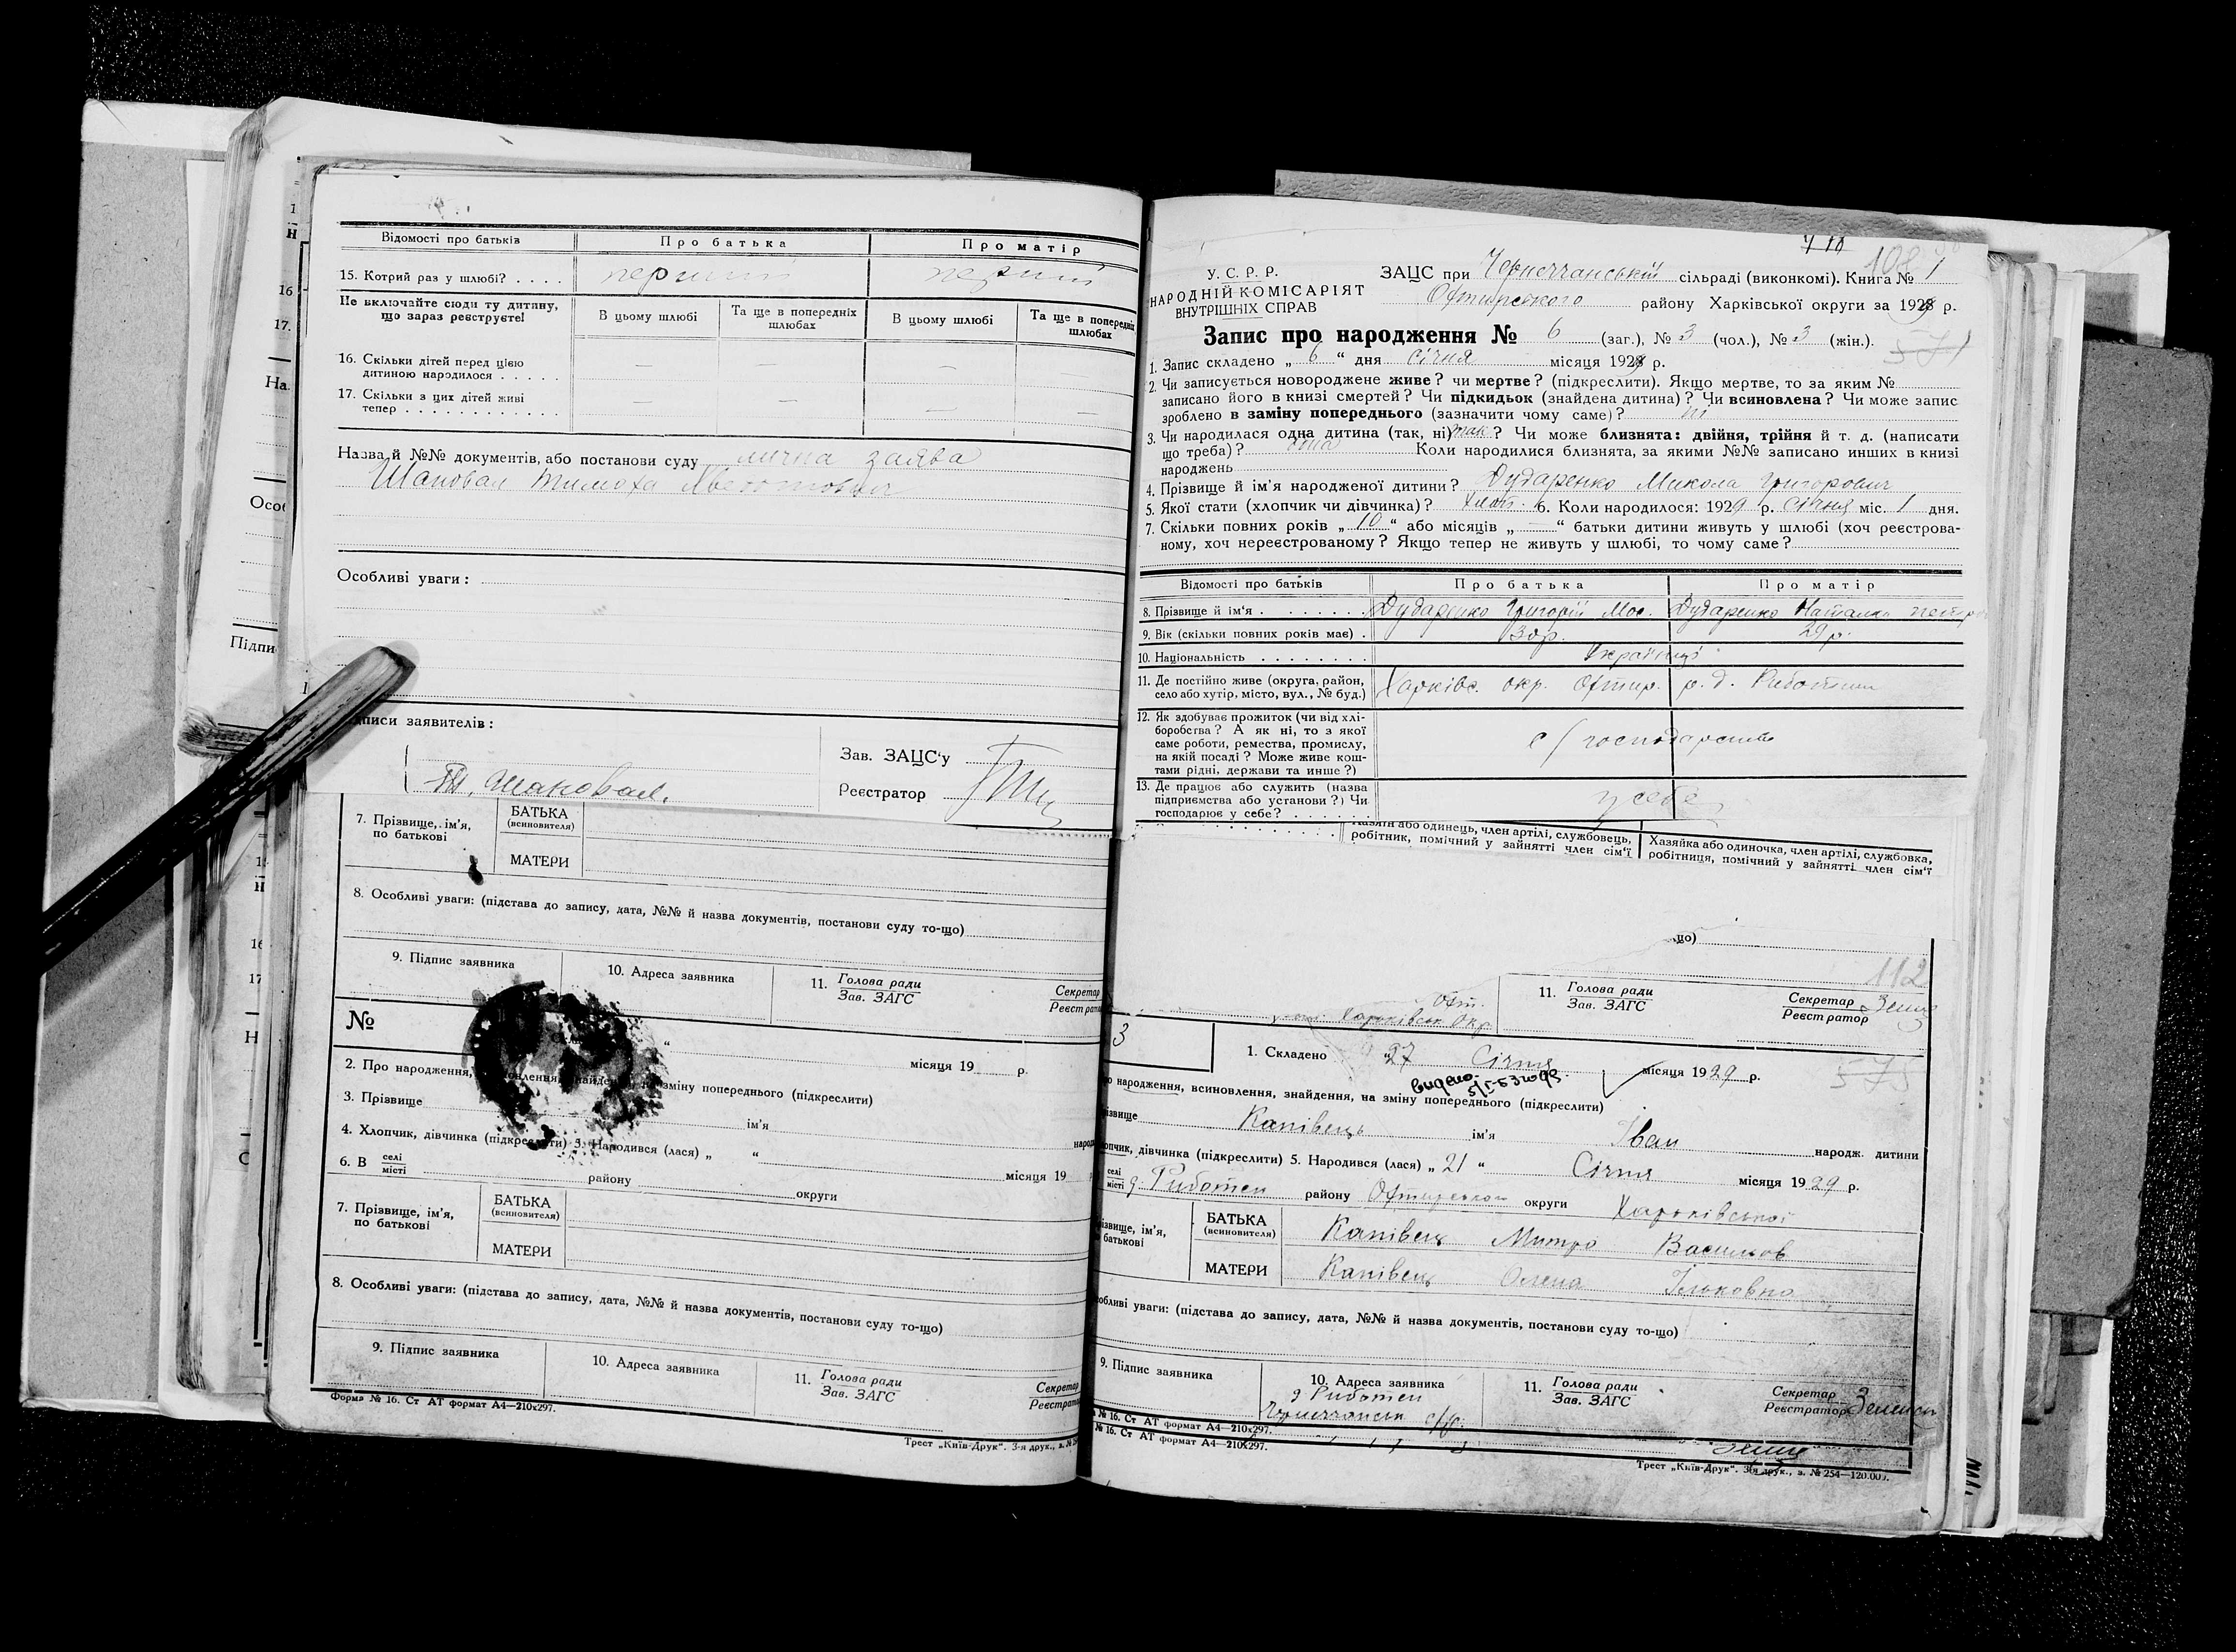 Відомості про батьків Про батька Про матір
15. Котрий раз у шлюбі? . . . . перший перший
Не включайте сюди ту дитину, що зараз реєструєте!
В цьому шлюбі Та ще в попередніх шлюбах В цьому шлюбі Та ще в попередніх шлюбах
16. Скільки дітей перед цією дитиною народилося . . . . . — — — —
17. Скільки з цих дітей живі тепер . . . . . . . . . . . . — — — —
Назва й №№ документів, або постанови суду лична заява
Шаповал Тимоха
Особливі уваги:
Підписи заявителів:
Шаповал.
Зав. ЗАЦС'у
Реєстратор
7. Прізвище, ім'я, по батькові
БАТЬКА
(всиновителя)
МАТЕРИ
8. Особливі уваги: (підстава до запису, дата, №№ й назва документів, постанови суду то-що)
9. Підпис заявника 10. Адреса заявника 11. Голова ради Зав. ЗАГС Секретар
№
місяця 19 р.
2. Про народження, зміну попереднього (підкреслити)
3. Прізвище ім'я
4. Хлопчик, дівчинка (підкреслити) 5. Народився (лася) „ “ місяця 19
6. В селі місті району округи
7. Прізвище, ім'я, по батькові
БАТЬКА
(всиновителя)
МАТЕРИ
8. Особливі уваги: (підстава до запису, дата, №№ й назва документів, постанови суду то-що)
9. Підпис заявника 10. Адреса заявника 11. Голова ради Зав. ЗАГС Секретар
Форма № 16. Ст АТ формат А4—210х297.
Трест „Київ-Друк“. 3-я друк.,
У. С. Р. Р.
НАРОДНІЙ КОМІСАРІЯТ
ВНУТРІШНІХ СПРАВ
ЗАЦС при Чернеччанській сільраді (виконкомі). Книга № 1
Охтирського району Харківської округи за 1929 р.
Запис про народження № 6 (заг.), № 3 (чол.), № 3 (жін.).
1. Запис складено „ 6 “ дня січня місяця 1929 р.
2. Чи записується новороджене живе? чи мертве? (підкреслити). Якщо мертве, то за яким №
записано його в книзі смертей? Чи підкидьок (знайдена дитина)? Чи всиновлена? Чи може запис
зроблено в заміну попереднього (зазначити чому саме)? ні
3. Чи народилася одна дитина (так, ні) так? Чи може близнята: двійня, трійня й т. д. (написати
що треба)? одна Коли народилися близнята, за якими №№ записано инших в книзі
народжень
4. Прізвище й ім'я народженої дитини? Дударенко Микола Григорович
5. Якої стати (хлопчик чи дівчинка)? хлоп. 6. Коли народилося: 1929 р. січня міс. 1 дня.
7. Скільки повних років „ 10 “ або місяців „ — “ батьки дитини живуть у шлюбі (хоч реєстрова-
ному, хоч нереєстрованому? Якщо тепер не живуть у шлюбі, то чому саме?
Відомості про батьків Про батька Про матір
8. Прізвище й ім'я . . . . . . . Дударенко Григорій Мос. Дударенко Наталка
9. Вік (скільки повних років має) . 30р. 29 р.
10. Національність . . . . . . . . Українці
11. Де постійно живе (округа, район, село або хутір, місто, вул., № буд.) Харківс. окр. Охтир. р. д. Риботин
12. Як здобуває прожиток (чи від хлі-
боробства? А як ні, то з якої
саме роботи, ремества, промислу,
на якій посаді? Може живе кош-
тами рідні, держави та инше?)
с/господарство
13. Де працює або служить (назва
підприємства або установи?) Чи
господарює у себе? . . . . . .
у себе
Хазяїн або одинець, член артілі, службовець, робітник, помічний у зайнятті член сім'ї
Хазяйка або одиночка, член артілі, службовка, робітниця, помічний у зайнятті член сім'ї
що)
112
Охт.
Харківськ Окр.
11. Голова ради Зав. ЗАГС Секретар Реєстратор
3
1. Складено „27 Січня місяця 1929 р.
видано
народження, всиновлення, знайдення, на зміну попереднього (підкреслити)
Канівець ім'я Іван народж. дитини
дівчинка (підкреслити) 5. Народився (лася) „ 21 “ Січня місяця 1929 р.
селі місті д. Риботен району Охтирського округи Харьківської
БАТЬКА
(всиновителя) Канівець Митро Васильов
МАТЕРИ Канівець Олена Ільковна
уваги: (підстава до запису, дата, №№ й назва документів, постанови суду то-що)
9. Підпис заявника 10. Адреса заявника 11. Голова ради Зав. ЗАГС Секретар Реєстратор
д Риботен
с/р.
№ 16. Ст АТ формат А4—210х297.
№ 16. Ст АТ формат А4—210х297.
Трест „Київ-Друк“. 3-я друк., з. № 254—120.000.